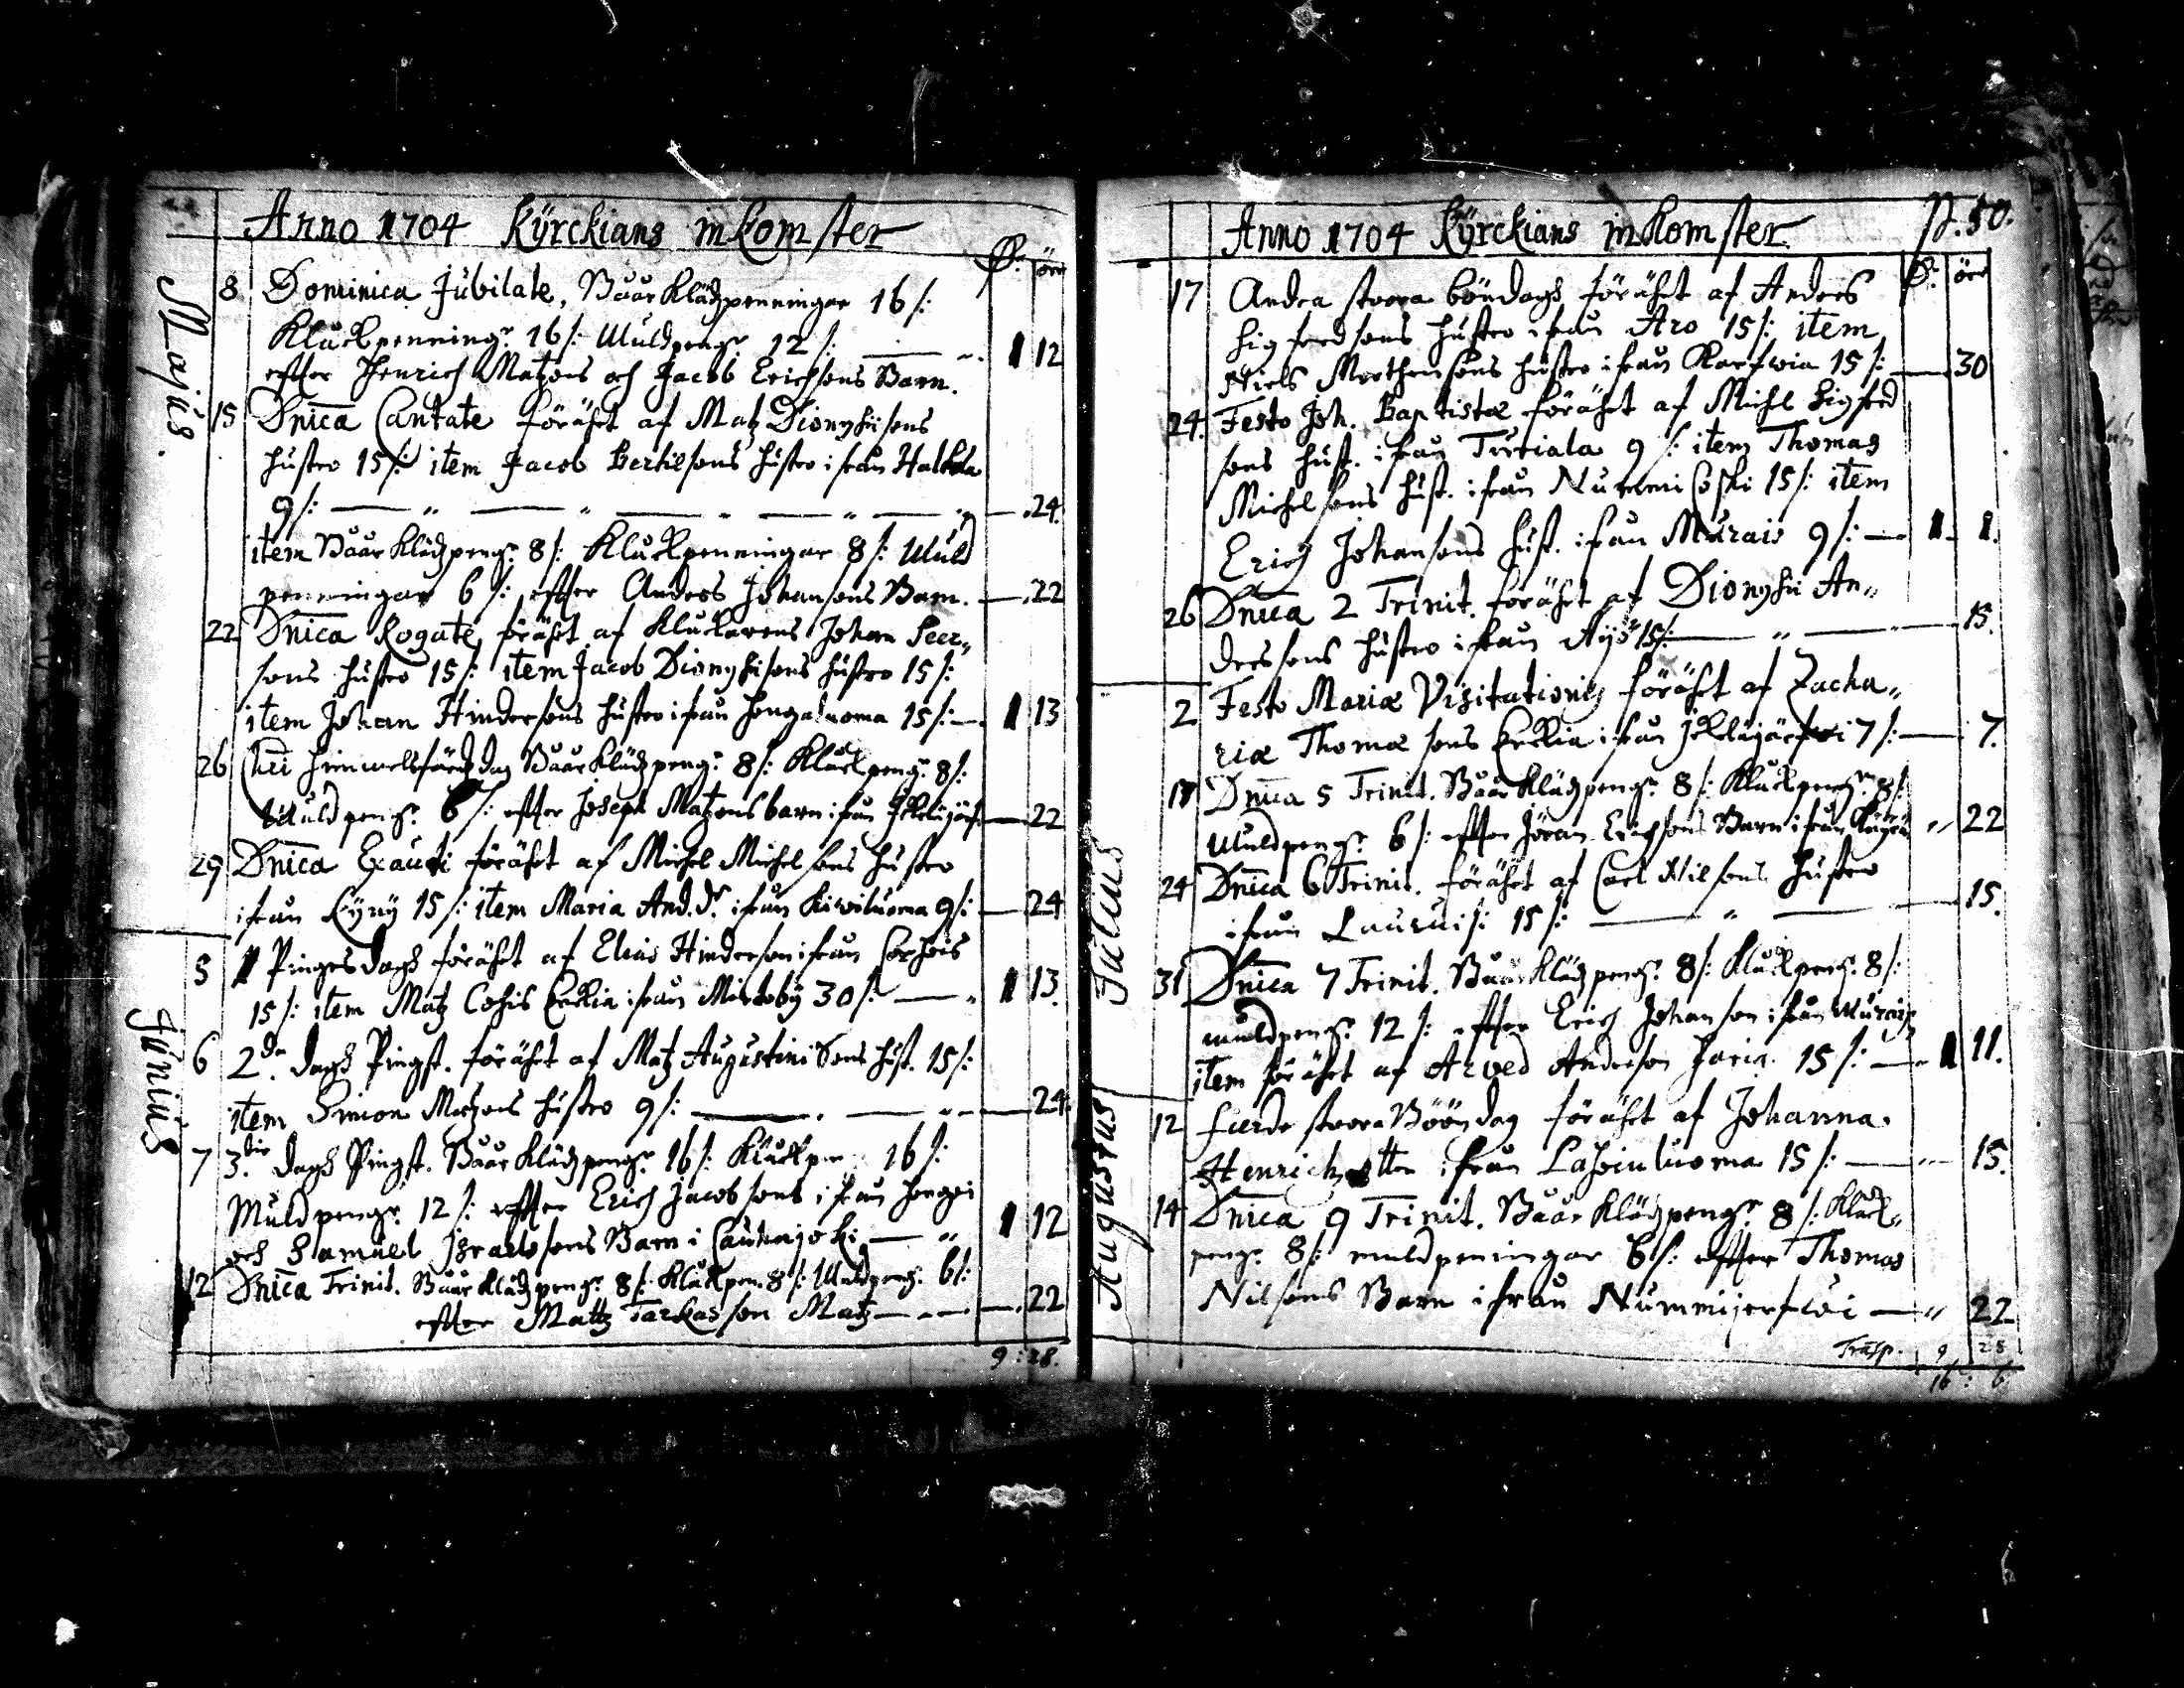 Anno 1704 Kyrckians inkomster
Dr. öre
Majus
8 Dominica Jubilate, Baar Klädzpenningar 16 /:
Kluckpenning.r 16 /: Muldpeng.r 12 /: 1 12
effter Henrich Matzons och Jacob Erichsons Barn.
15 Dnica Cantate förährt af Matz Dionysiisons
hustro 15 /: item Jacob Bertilsons hustro ifrån
9 /: 24.
item Baar Klädzpeng.r 8 /: Kluckpenningar 8 /: Muld
penningar 6 /: effter Anders Johansons Barn. 22
22 Dnica Rogate, förährt af Kluckarens Johan Peer„
sons hustro 15 /: item Jacob Dionysiisons hustro 15 /:
item Johan Hindersons hustro ifrån 15 /: 1 13
26 Chri himmelsfärdz dag Baar Klädzpeng.r 8 /: Kluckpeng.r 8 /:
Muldpeng.r 6 /: effter Joseph Matzons barn ifrån 22
29 Dnica Exaudi förährt af Michel Michelsons hustro
ifrån Kyny 15 /: item Maria And.dr. ifrån Kiwiluoma 9 /: 24
Junius
5 1 Pingesdagh förährt af Elias Hinderson ifrån
15 /: item Matz Cohis Enckia ifrån Mietoby 30 /: 1 13.
6 2.da dagh Pingst. förährt af Matz Augustini Sons hust. 15 /:
item Simon Matzons hustro 9 /: 24.
7 3.die dagh Pingst. Baar Klädzpeng.r 16 /: Kluckpen. 16 /:
Muldpeng.r 12 /: effter Erich Jacobsons ifrån
och Samuel Israelssons Barn i Cauhajocki 1 12
12 Dnica Trinit. Baar Klädzpeng.r 8 /: Kluckpen. 8 /: Muldpeng. 6 /:
effter Mattz Tarkasson Matz 22
9 : 28.
Anno 1704 Kyrckians inkomster p. 50.
Dr. öre
17 Andra stoora böndagh förährt af Anders
Sigfredsons hustro ifrån Aro 15 /: item
Niels Morthensons hustro ifrån 15 /: 30
24. Festo Joh. Baptistæ förährt af Michl Sigfred
sons hust. ifrån 9 /: item Thomas
Michelsons hust. ifrån Nummicoski 15 /: item
Erich Johansons hust. ifrån Murais 9 /: 1. 1.
26 Dnica 2 Trinit. förährt af Dionysii An„
derssons hustro ifrån Äijö 15 /: 15.
Julius
2 Festo Mariæ Visitationis förährt af Zacha„
riæ Thomæ sons Enckia ifrån 7 /: 7.
17 Dnica 5 Trinit. Baar Klädzpeng.r 8 /: Kluckpeng.r 8 /:
Muldpeng.r 6 /: effter Jöran Erichsons Barn ifrån 22
24 Dnica 6 Trinit. förährt af Carl Nilsons hustro
ifrån 15 /: 15.
31 Dnica 7 Trinit. Baar Klädzpeng.r 8 /: Kluckpeng.r 8 /:
muldpeng.r 12 /: effter Erich Johanson ifrån Murais
item förährt af Arved Anderson 15 /: 1 11.
Augustus
12 fierde stoora Bööndag förährt af Johanna.
Henrichzdotter ifrån 15 /: 15.
14 Dnica 9 Trinit. Baar Klädzpeng.r 8 /: Kluck„
peng.r 8 /: muldpeningar 6 /: effter Thomas
Nilsons Barn ifrån Nummijerfwi 22
Trãsp. 9 28
16 : 6